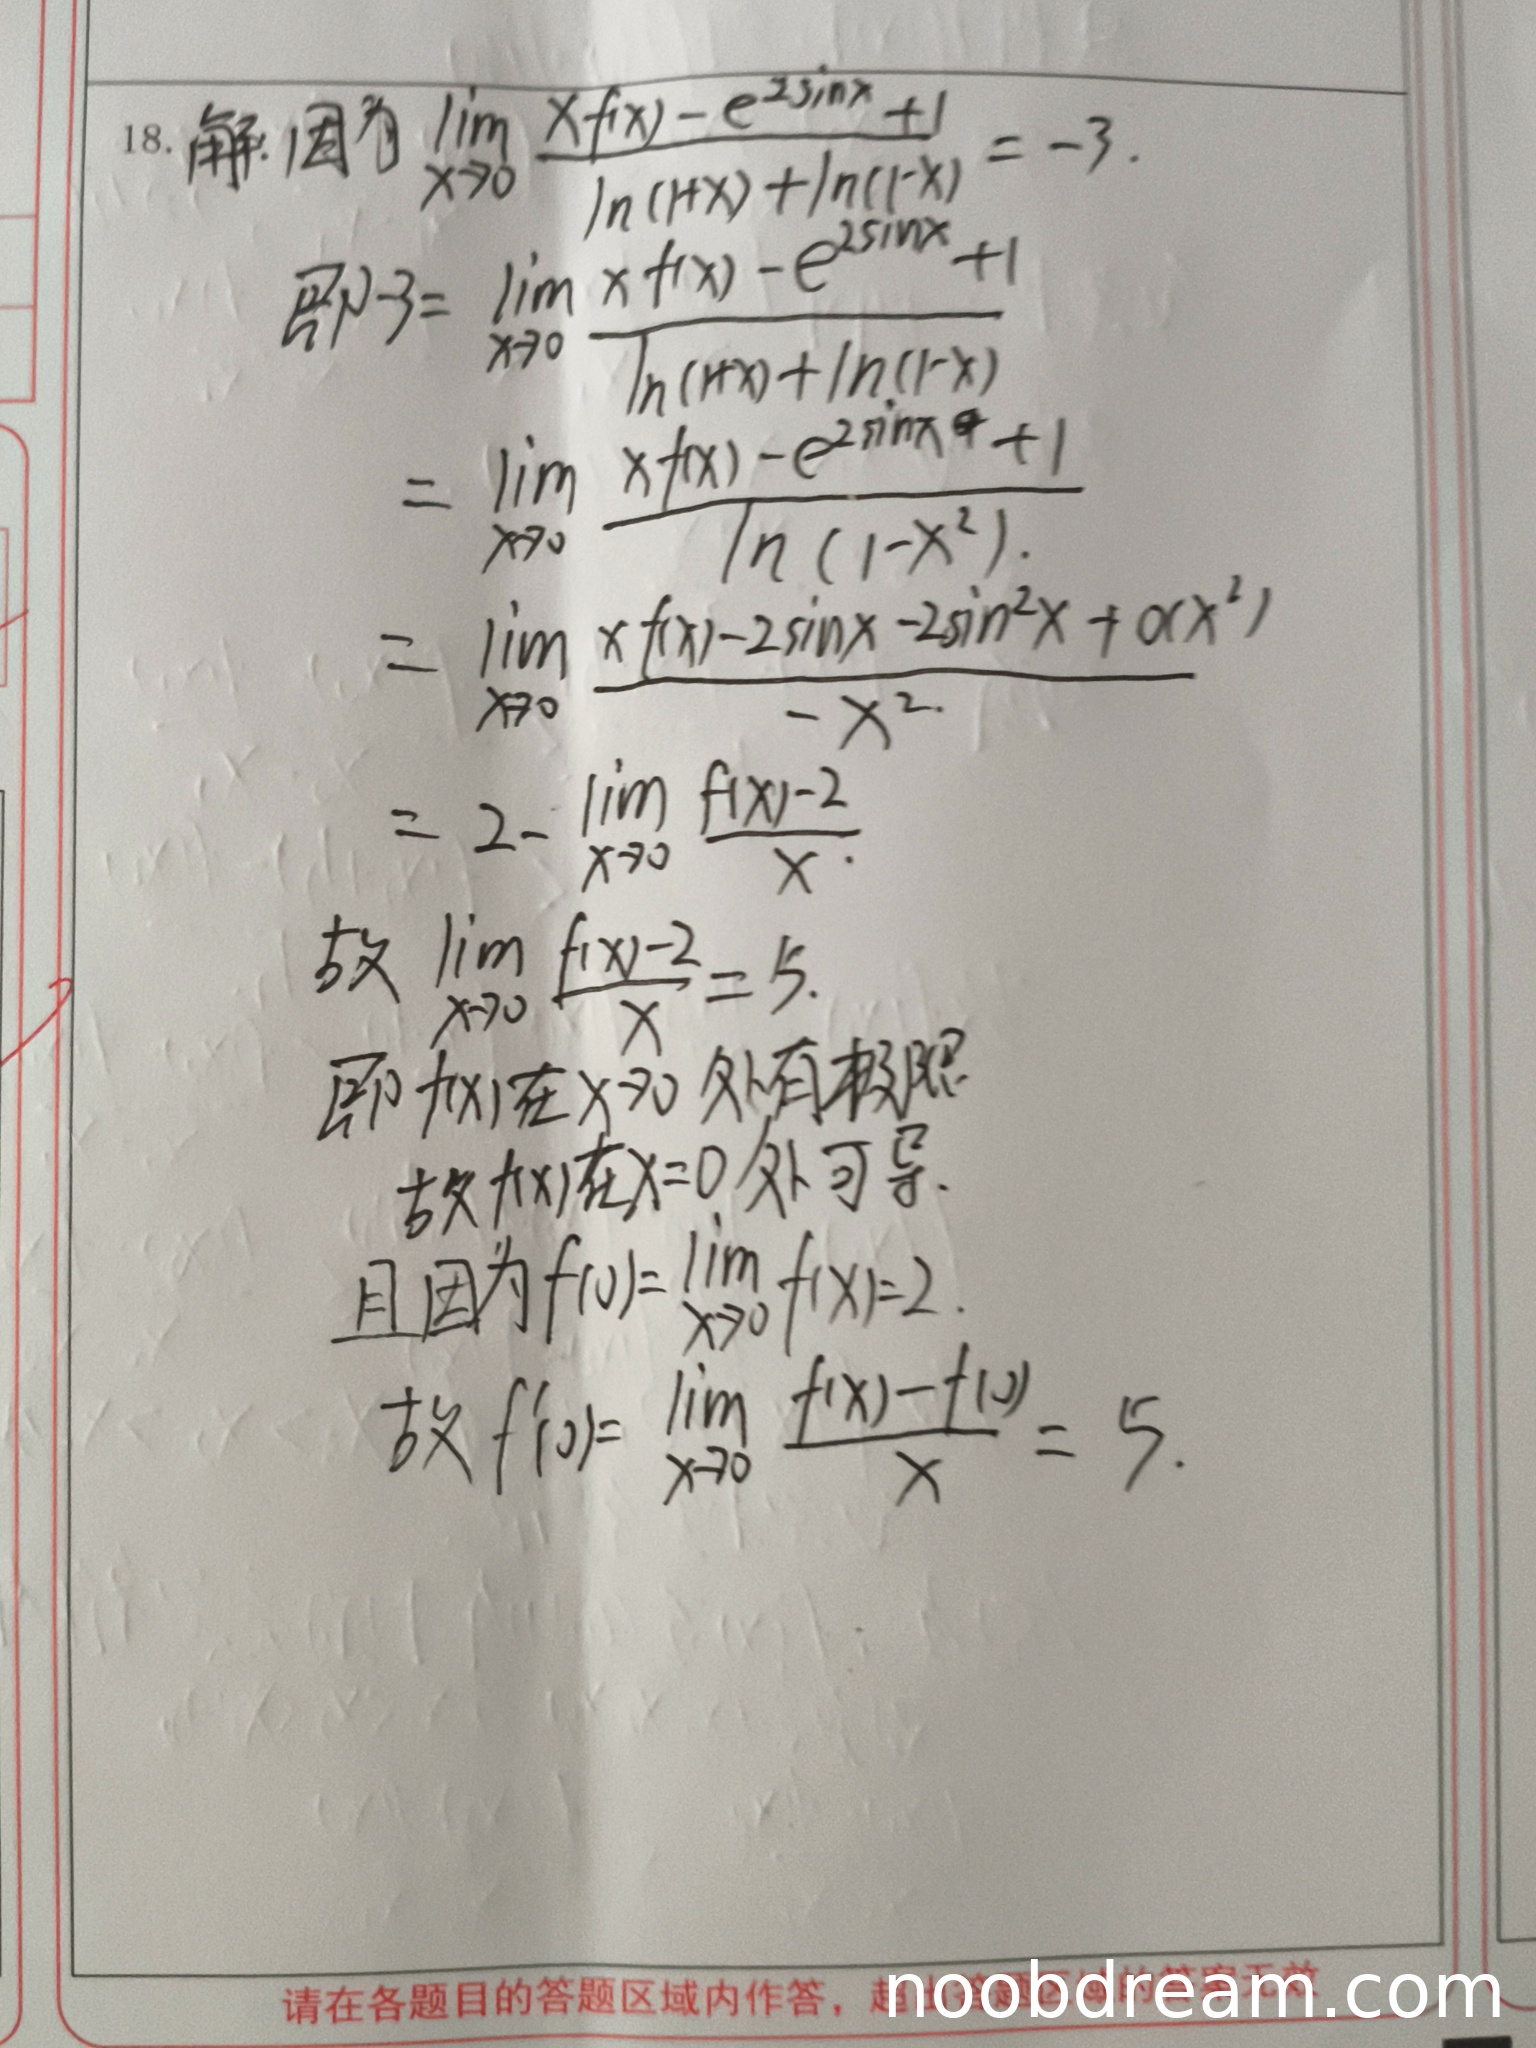 18. 解:因为 lim x→0 (xf(x) - e^{2sinx} + 1) / (ln(1+x) + ln(1-x)) = -3.
即 -3 = lim x→0 (xf(x) - e^{2sinx} + 1) / (ln(1+x) + ln(1-x))
= lim x→0 (xf(x) - e^{2sinx} + 1) / (ln(1-x²)).
= lim x→0 (xf(x) - 2sinx - 2sin²x + o(x²)) / (-x²).
= 2 - lim x→0 (f(x) - 2) / x.
故 lim x→0 (f(x) - 2) / x = 5.
即 f(x) 在 x→0 处有极限
故 f(x) 在 x=0 处可导.
且因为 f(0) = lim x→0 f(x) = 2.
故 f'(0) = lim x→0 (f(x) - f(0)) / x = 5.
请在各题目的答题区域内作答，超出答题区域的答案无效
noobdream.com